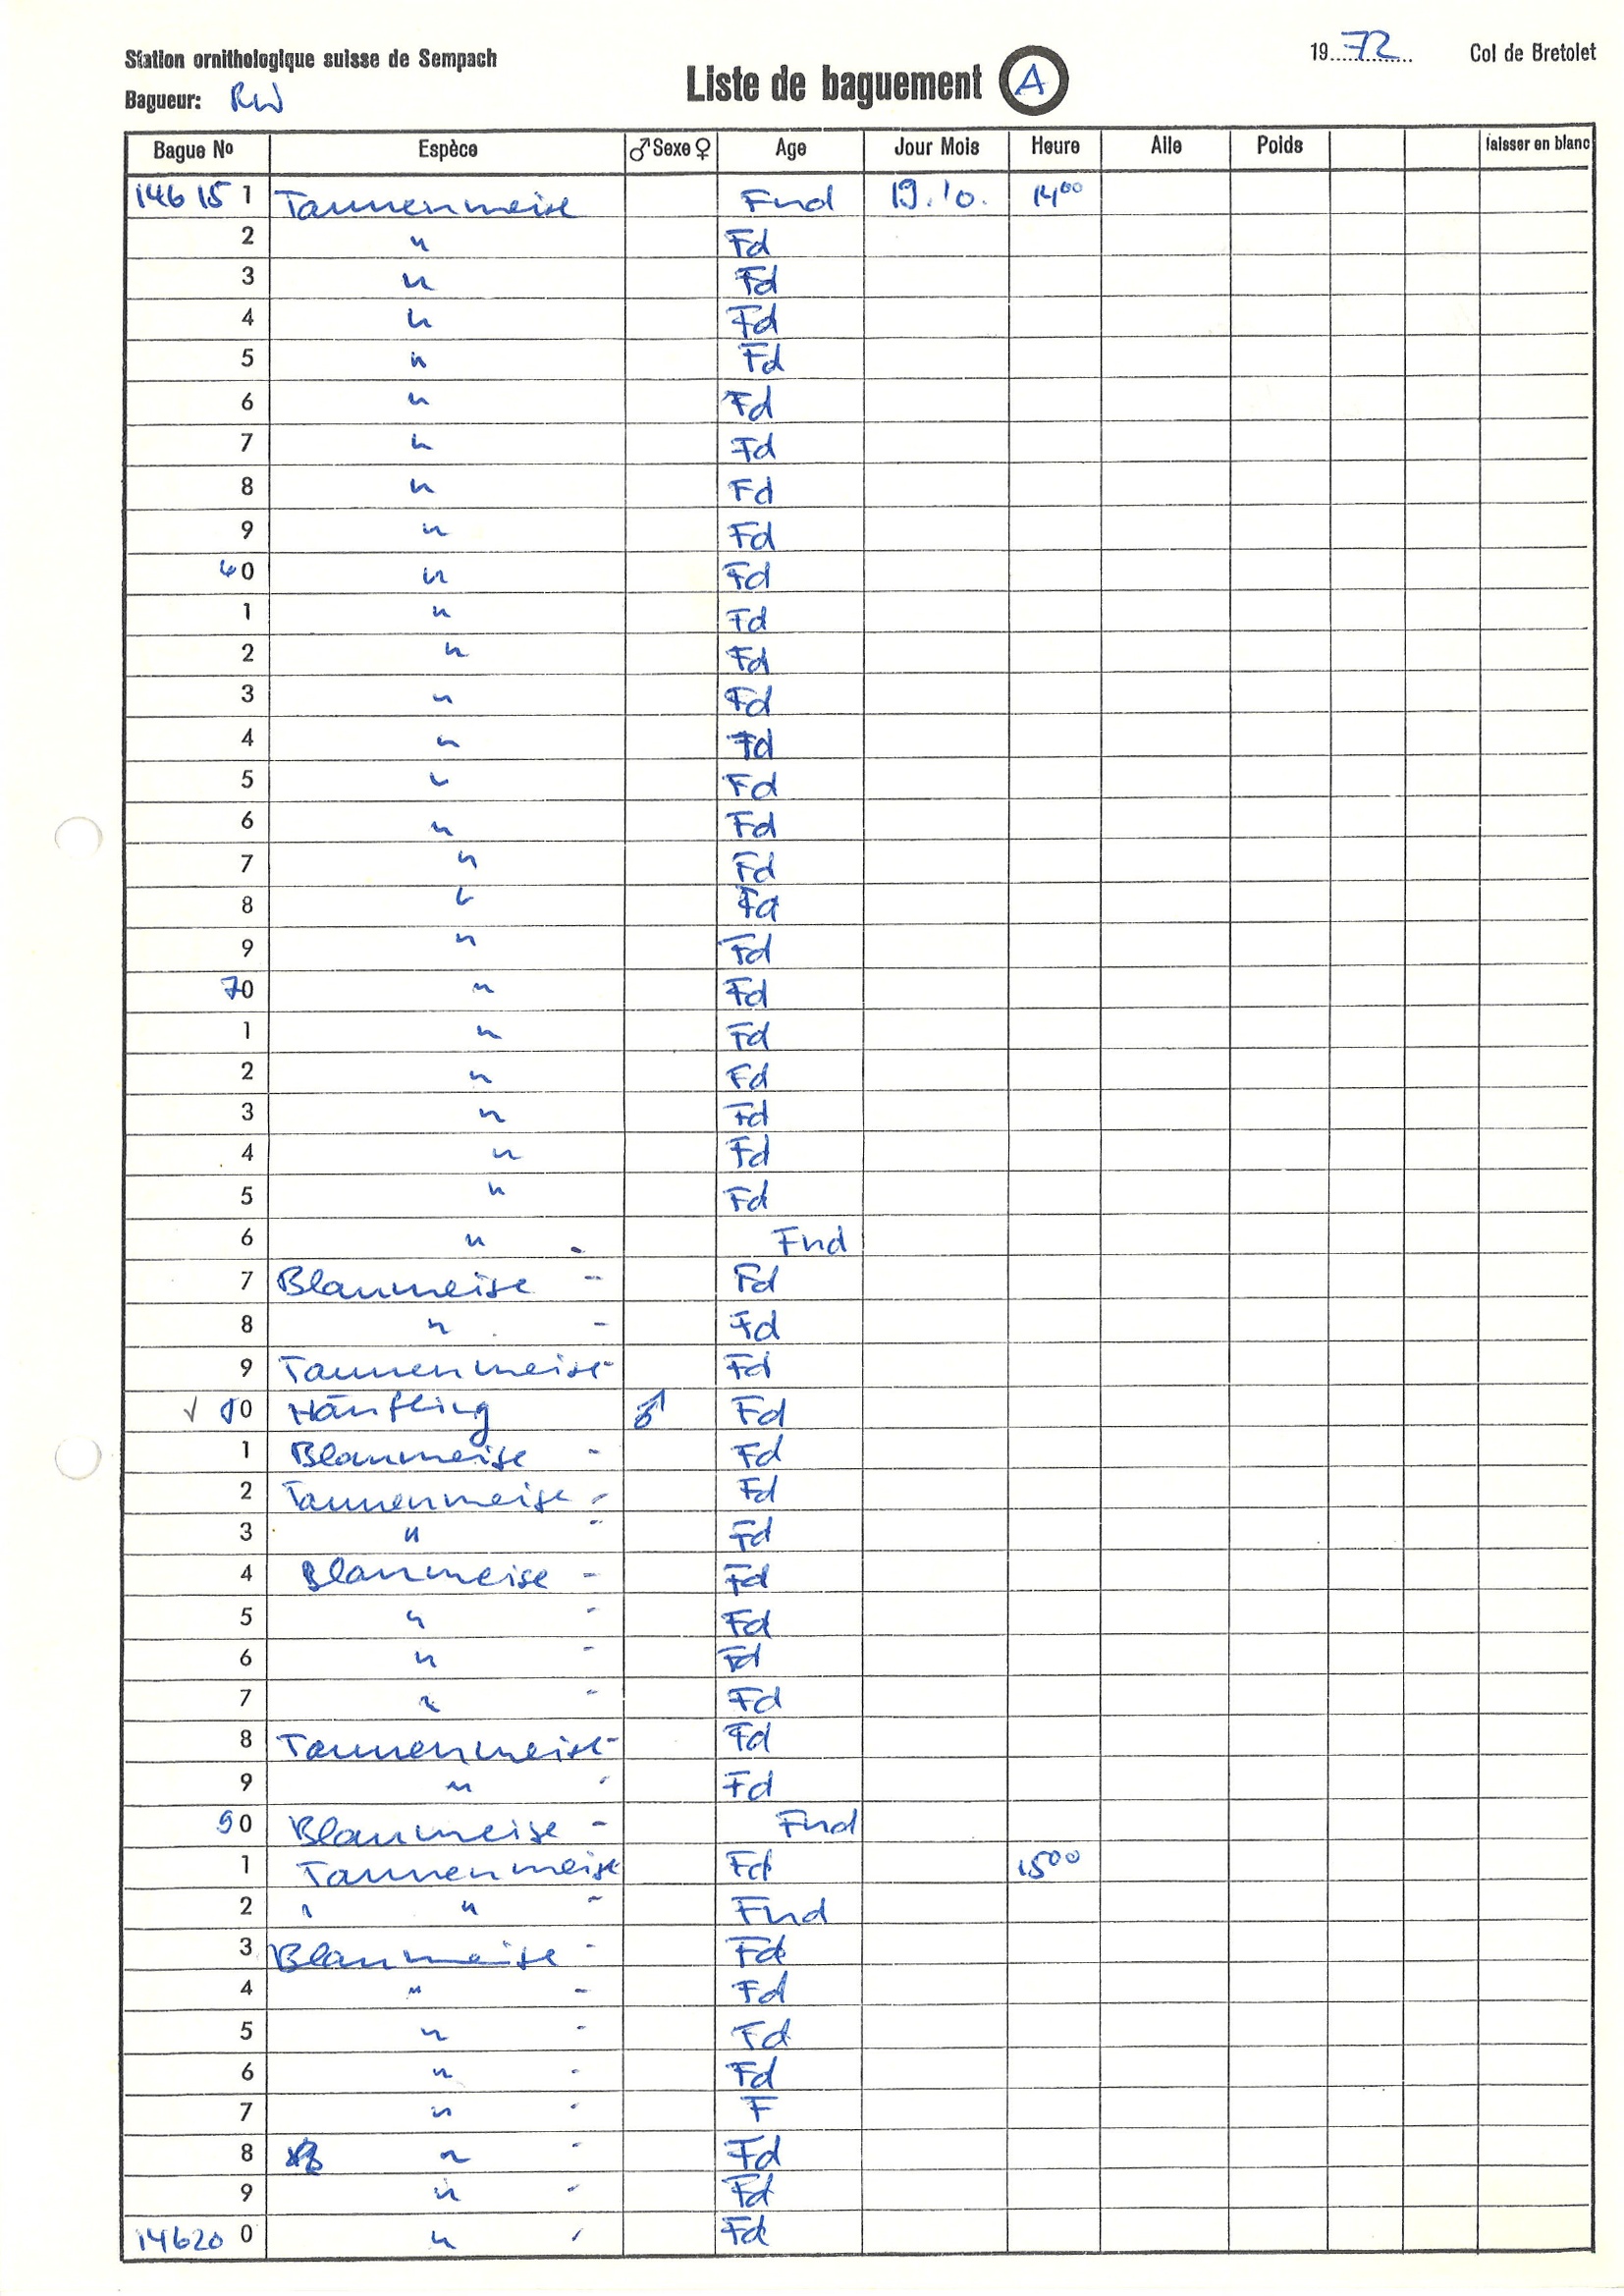 Station ornithologique suisse de Sempach
19 72 Col de Bretolet
Bagueur: RW
Liste de baguement A
Bague No Espèce ♂ Sexe ♀ Age Jour Mois Heure Alle Poids laisser en blanc
14615 1 Tannenmeise Fnd 19.10. 14⁰⁰
2 " Fd
3 " Fd
4 " Fd
5 " Fd
6 " Fd
7 " Fd
8 " Fd
9 " Fd
60 " Fd
1 " Fd
2 " Fd
3 " Fd
4 " Fd
5 " Fd
6 " Fd
7 " Fd
8 " Fd
9 " Fd
70 " Fd
1 " Fd
2 " Fd
3 " Fd
4 " Fd
5 " Fd
6 " Fnd
7 Blaumeise - Fd
8 " - Fd
9 Tannenmeise - Fd
√ 80 Hänfling ♂ Fd
1 Blaumeise - Fd
2 Tannenmeise - Fd
3 " - Fd
4 Blaumeise - Fd
5 " - Fd
6 " - Fd
7 " - Fd
8 Tannenmeise - Fd
9 " - Fd
90 Blaumeise - Fnd
1 Tannenmeise Fd 15⁰⁰
2 " - Fnd
3 Blaumeise - Fd
4 " - Fd
5 " - Fd
6 " - Fd
7 " - F
8 " - Fd
9 " - Fd
14620 0 " - Fd